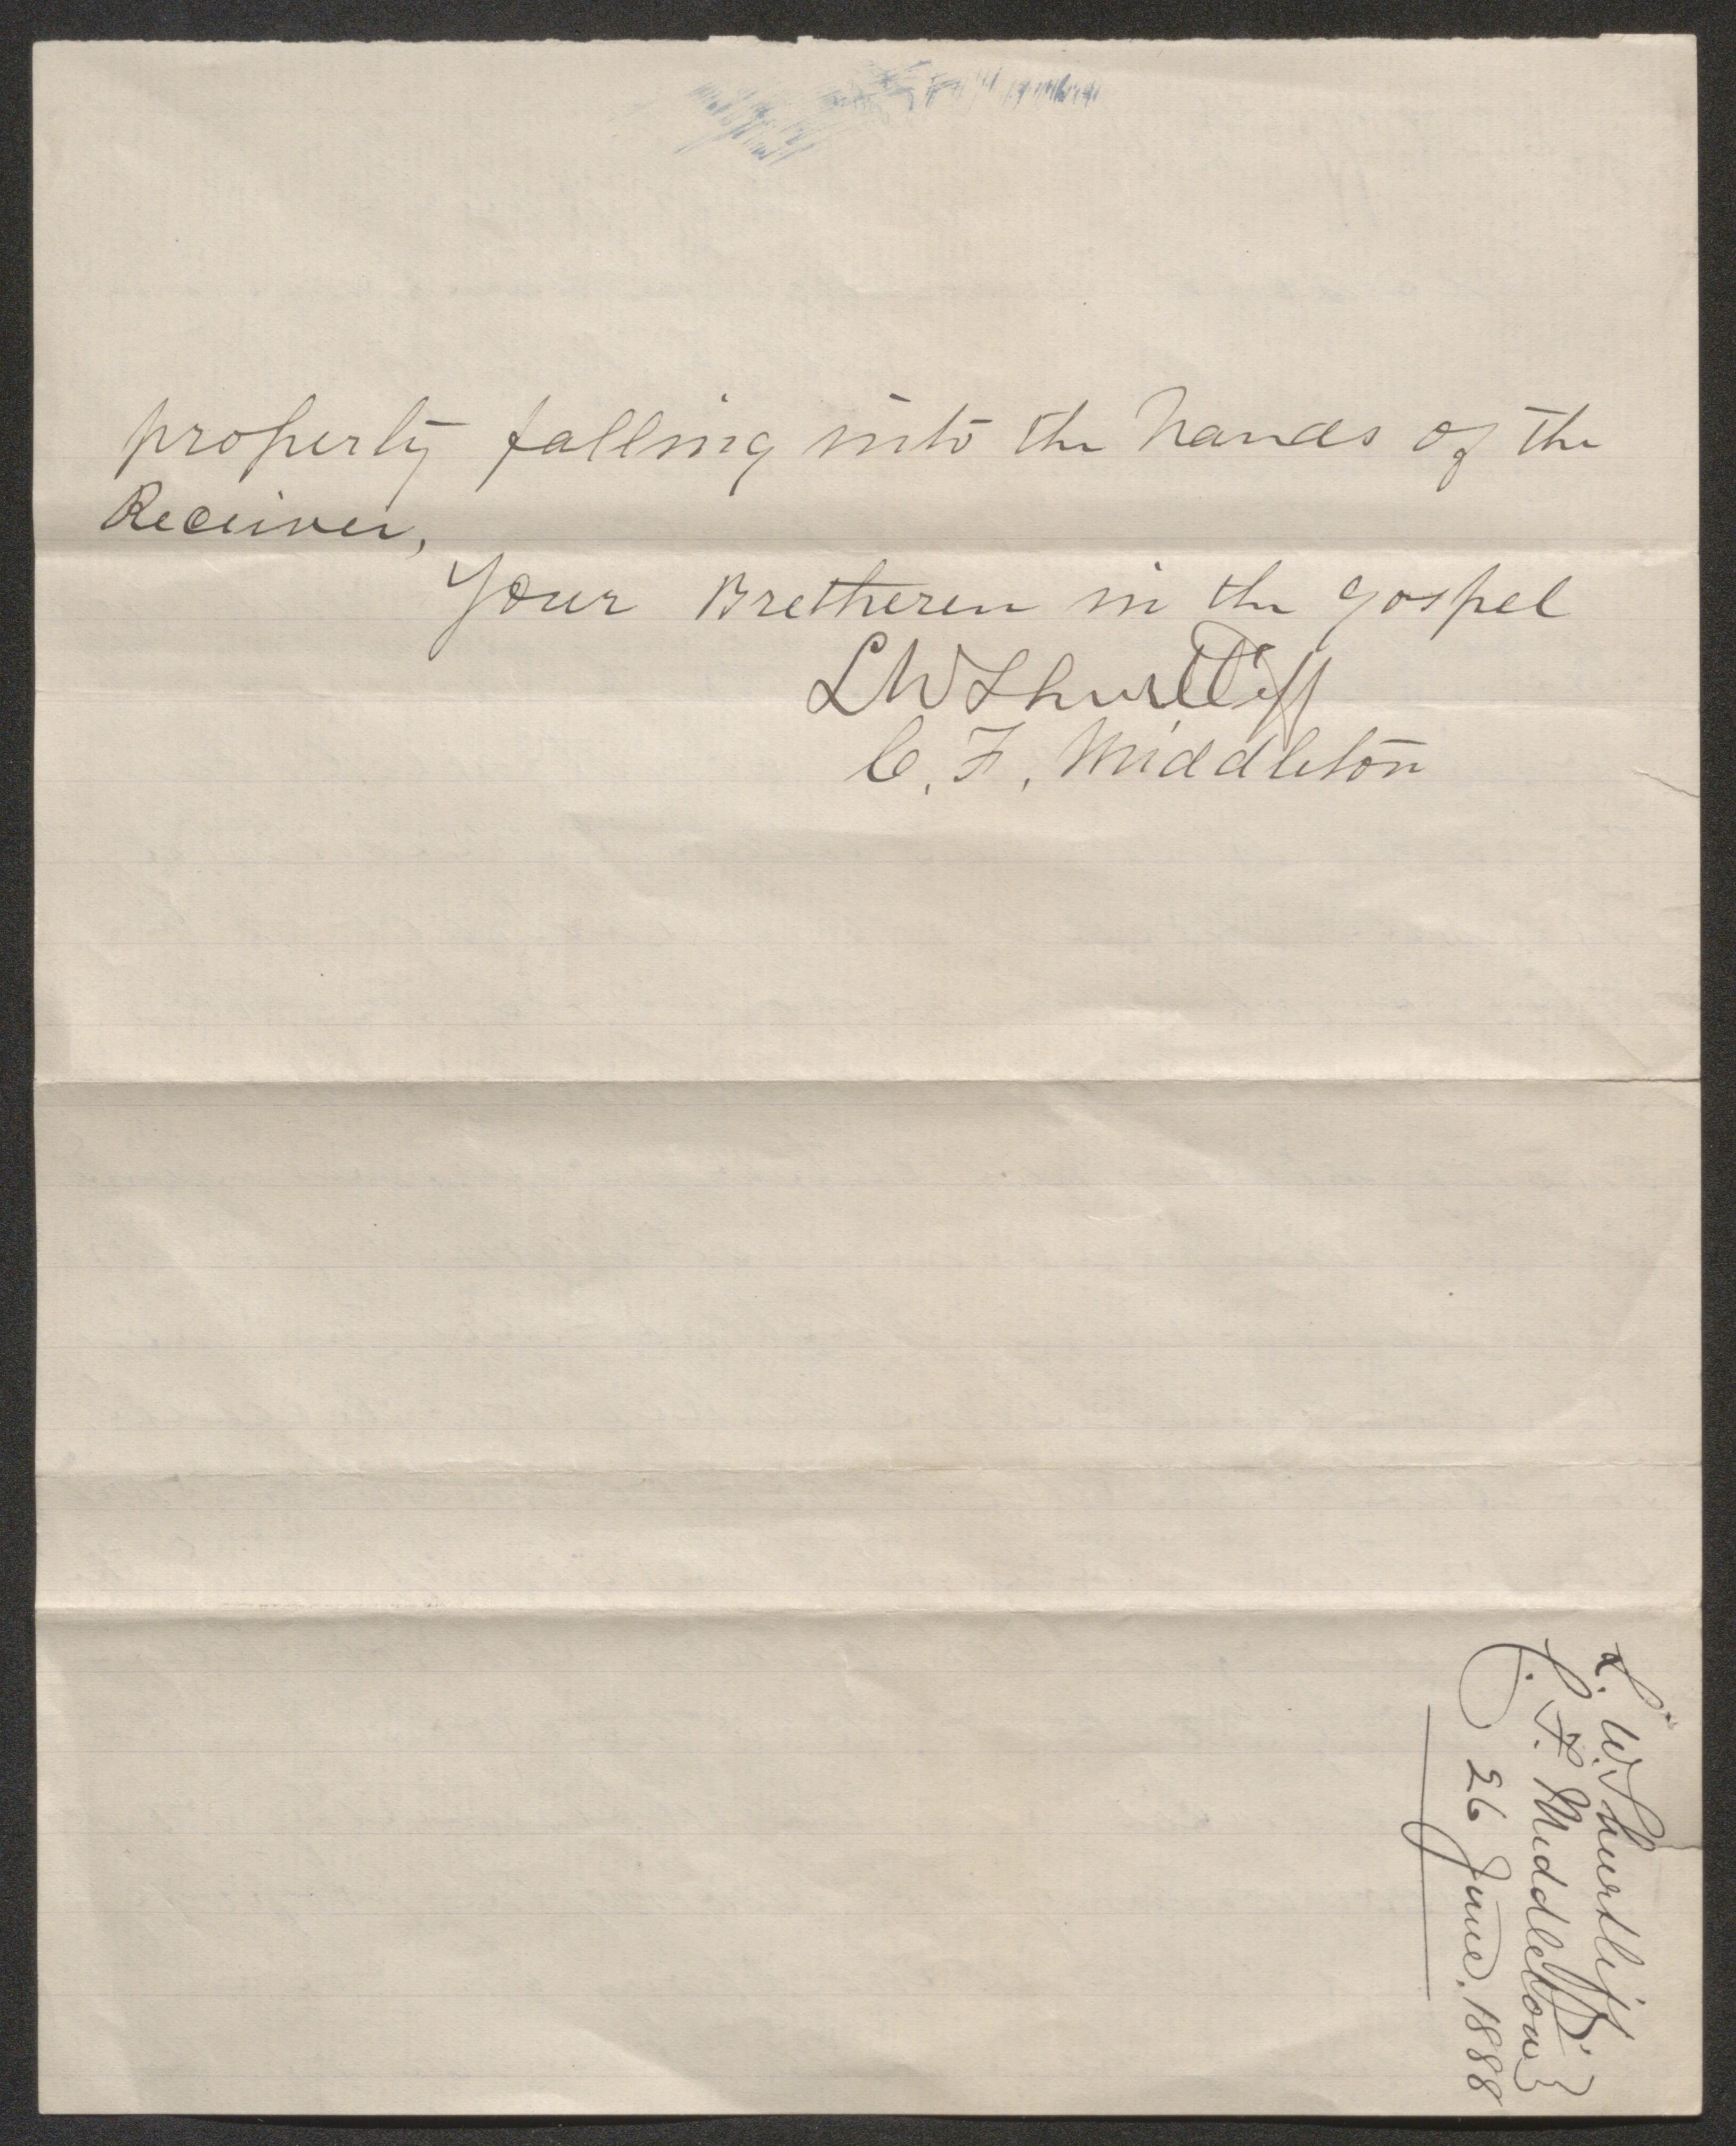 property falling into the hands of the
Receiver,
Your Bretheren in the gospel
L W Shurtliff
C. F. Middleton
L. W. Shurtliff
C. F. Middleton
26 June. 1888